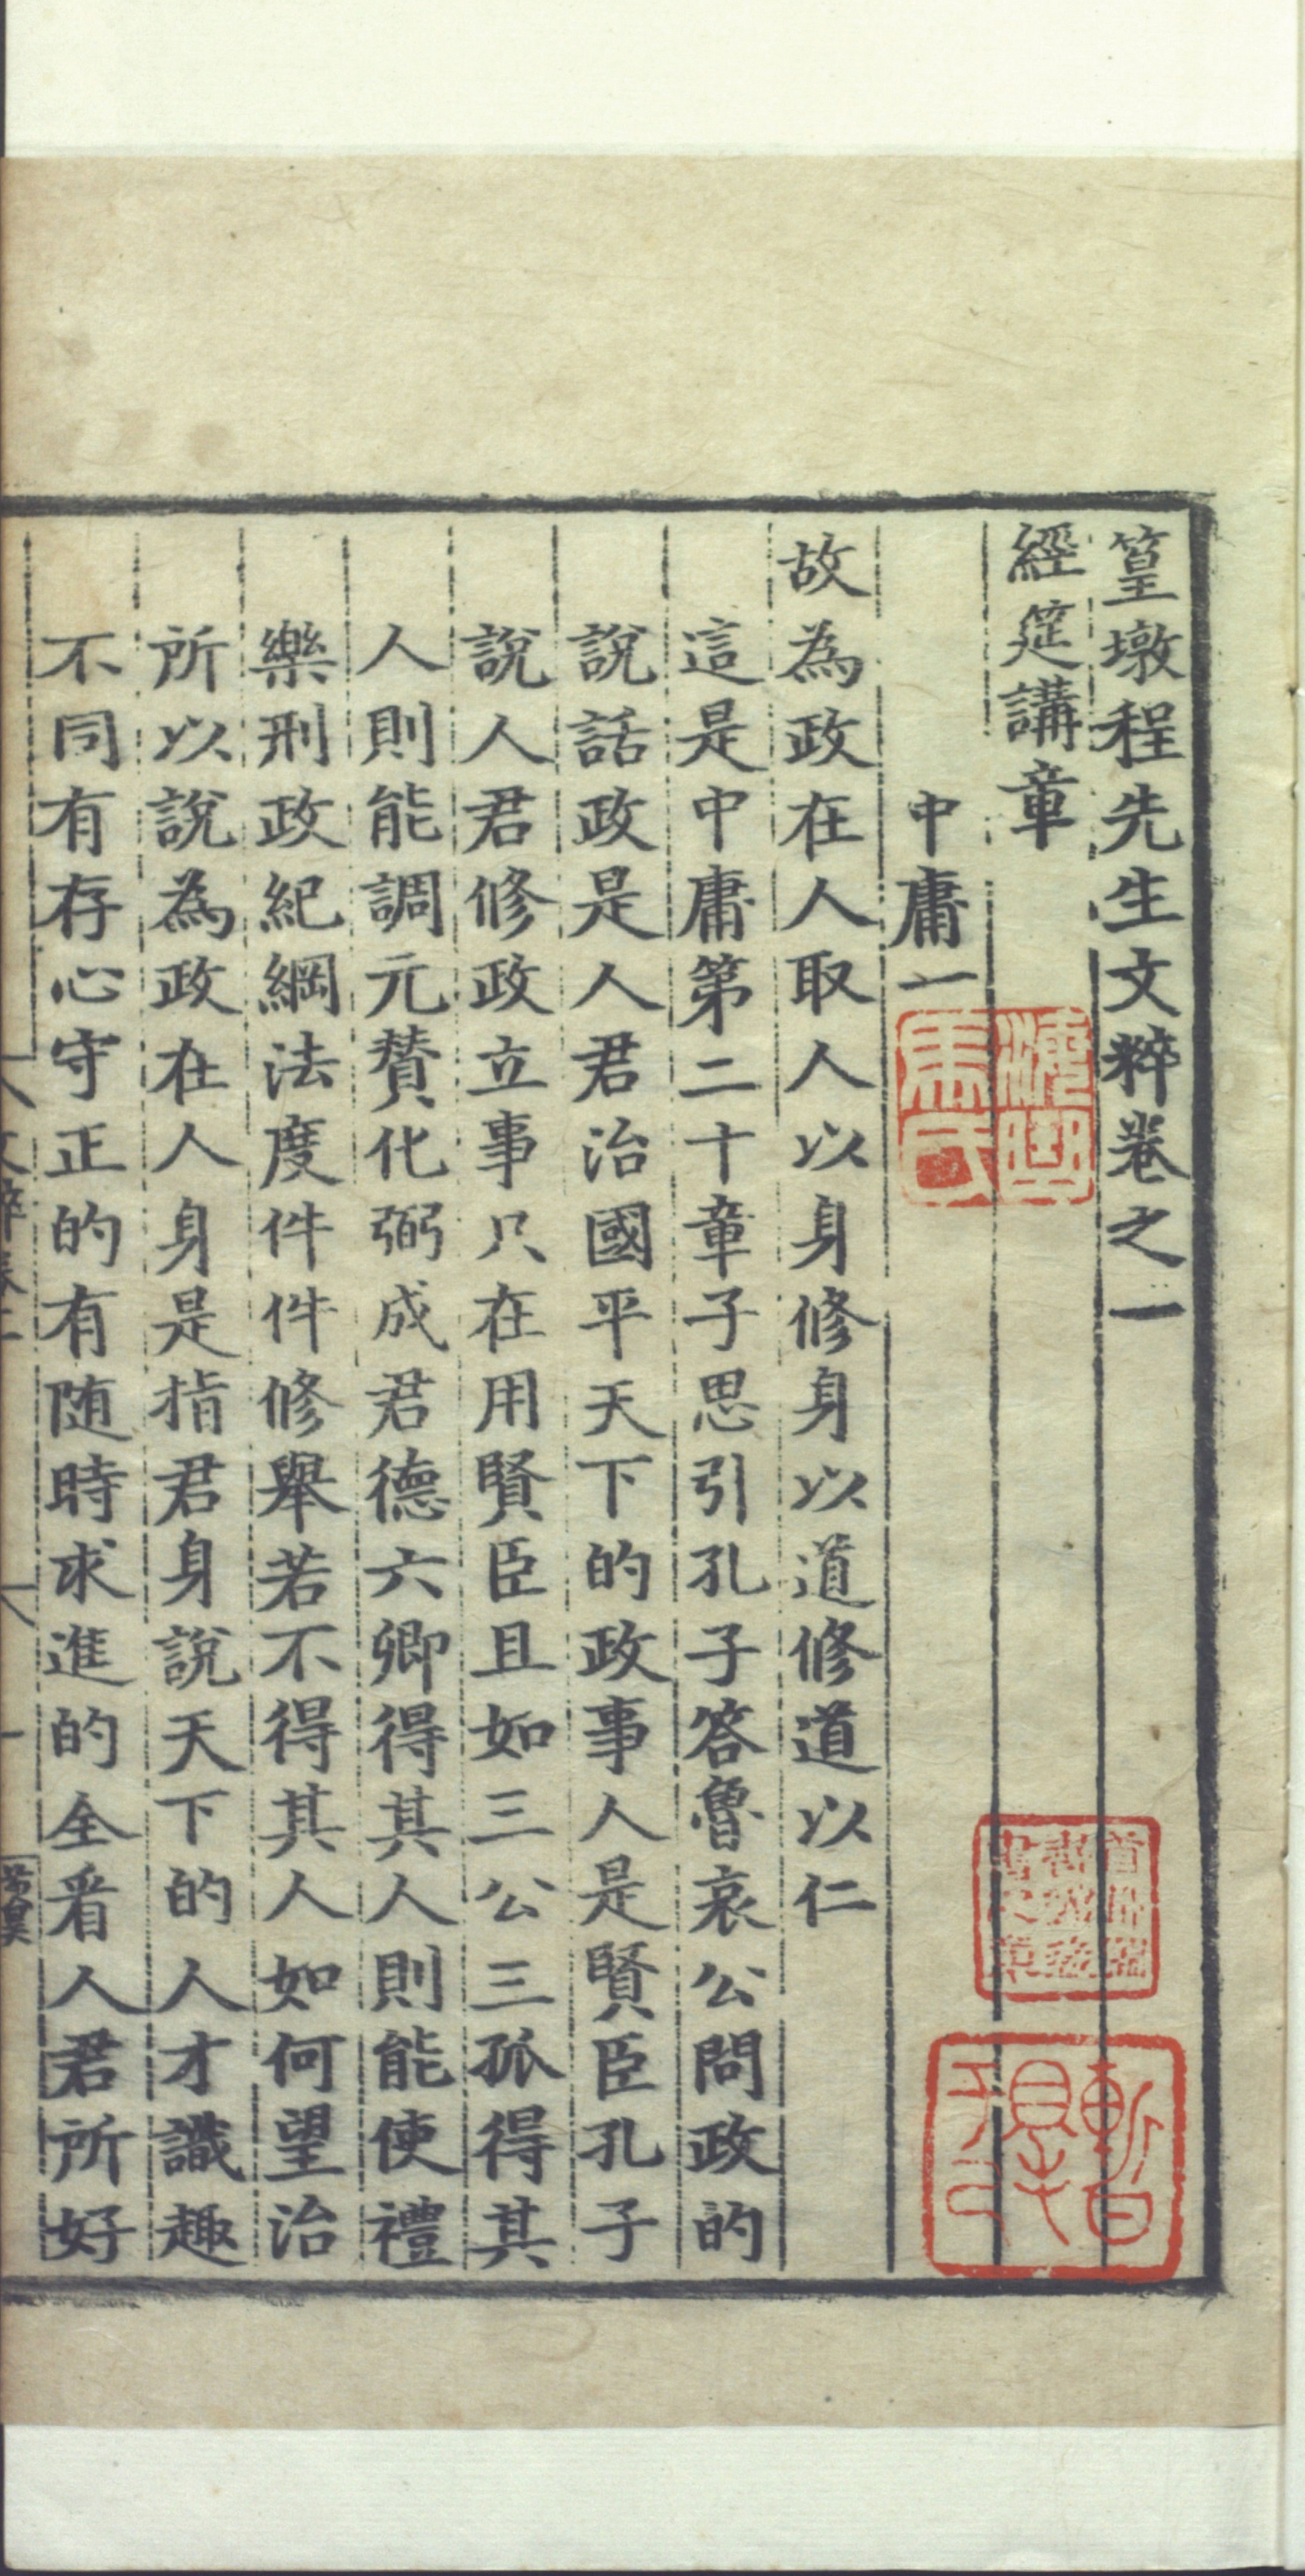 篁墩程先生文粹卷之一
經筵講章
中庸一
故為政在人取人以身修身以道修道以仁
這是中庸第二十章子思引孔子答魯哀公問政的
說話政是人君治國平天下的政事人是賢臣孔子
說人君修政立事只在用賢臣且如三公三孤得其
人則能調元賛化弼成君德六卿得其人則能使禮
樂刑政紀綱法度件件修舉若不得其人如何望治
所以說為政在人身是指君身說天下的人才識趣
不同有存心守正的有随時求進的全看人君所好